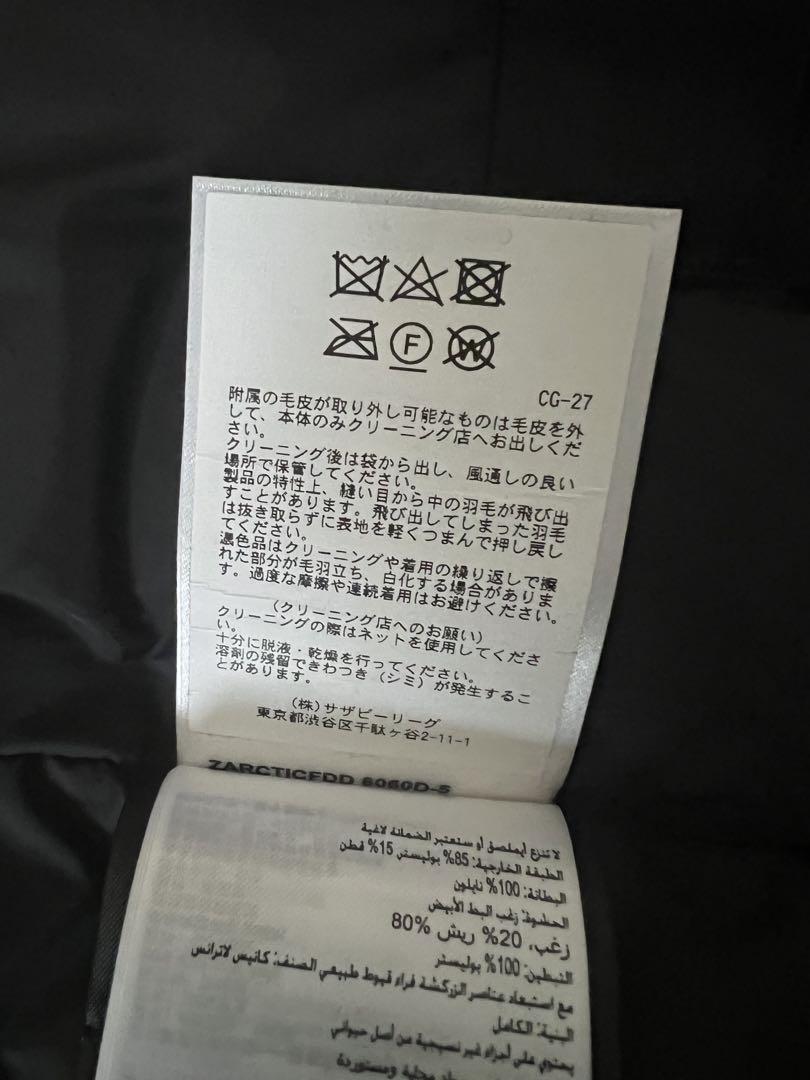 F W
CG-27
附属の毛皮が取り外し可能なものは毛皮を外
して、本体のみクリーニング店へお出しくだ
さい。
クリーニング後は袋から出し、風通しの良い
場所で保管してください。
製品の特性上、縫い目から中の羽毛が飛び出
すことがあります。飛び出してしまった羽毛
は抜き取らずに表地を軽くつまんで押し戻し
てください。
濃色品はクリーニングや着用の繰り返しで擦
れた部分が毛羽立ち、白化する場合がありま
す。過度な摩擦や連続着用はお避けください。
(クリーニング店へのお願い)
クリーニングの際はネットを使用してくださ
い。
十分に脱液・乾燥を行ってください。
溶剤の残留できわつき(シミ)が発生するこ
とがあります。
(株)サザビーリーグ
東京都渋谷区千駄ヶ谷2-11-1
ZARCTICFDD 6060D-5
لا تنزع أيملصق أو ستعتبر الضمانة لاغية
الطبقة الخارجية: 85% بوليستر 15% قطن
البطانة: 100% نايلون
الحشوة: زغب البط الأبيض
80% زغب، 20% ريش
التبطين: 100% بوليستر
مع استبعاد عناصر الزركشة فراء قيوط طبيعي الصنف: كانيس لاترانس
البنية: الكامل
يحتوي على أجزاء غير نسيجية من أصل حيواني
محلية ومستوردة